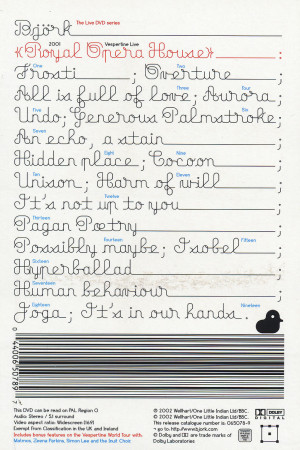 Björk The Live DVD series
2001 Vespertine Live
«Royal Opera House» :
One Two
Frosti ; Overture ;
Three Four
All is full of love; Aurora;
Five Six
Undo; Generous Palmstroke;
Seven
An echo, a stain ;
Eight Nine
Hidden place; Cocoon ;
Ten Eleven
Unison; Harm of will ;
Twelve
It's not up to you ;
Thirteen
Pagan Poetry ;
Fourteen Fifteen
Possibly maybe; Isobel ;
Sixteen
Hyperballad ;
Seventeen
Human behaviour ;
Eighteen Nineteen
Joga; It's in our hands.
This DVD can be read on PAL. Region 0
Audio: Stereo / 5.1 surround
Video aspect ratio: Widescreen
Exempt from Classification in the UK and Ireland
Includes bonus features on the Vespertine World Tour with
Matmos, Zeena Parkins, Simon Lee and the Inuit Choir
© 2002 Wellhart/One Little Indian Ltd/BBC.
℗ 2002 Wellhart/One Little Indian Ltd/BBC.
This release catalogue number is. 065078-9
> go to. http://www.bjork.com
Dolby and DD are trade marks of
Dolby Laboratories
DOLBY
DIGITAL